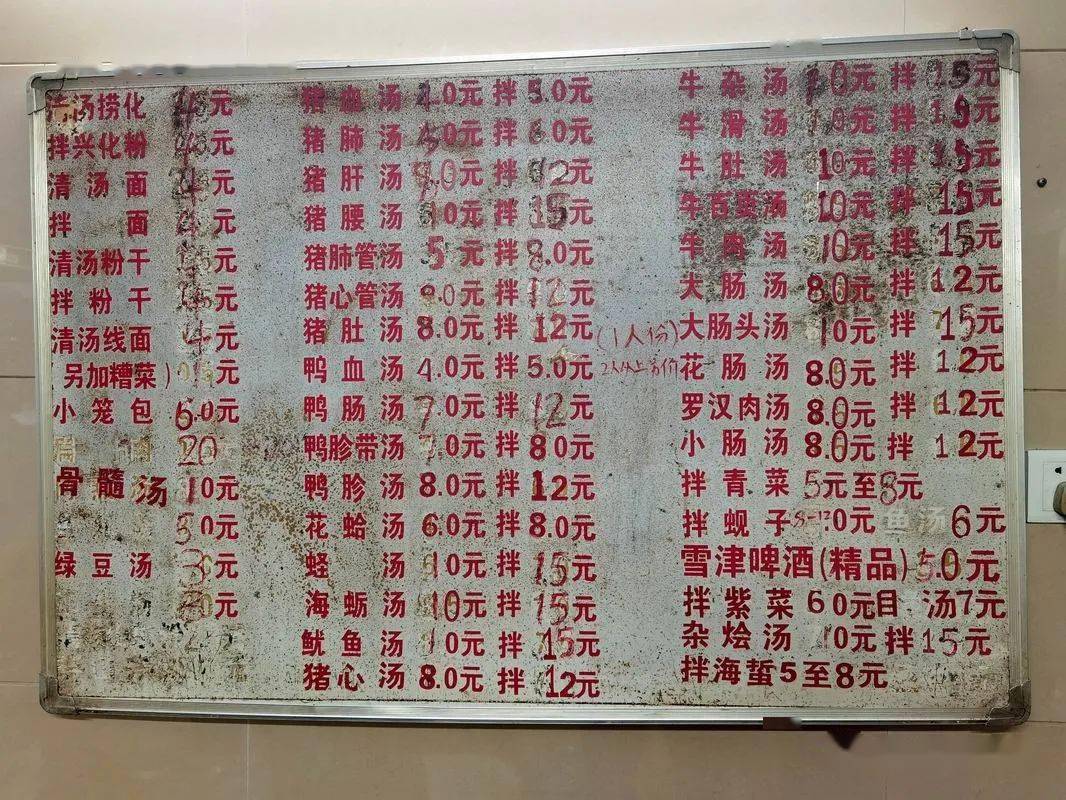 清汤捞化 4元
拌兴化粉 4元
清汤面 4元
拌面 4元
清汤粉干 元
拌粉干 元
清汤线面 4元
另加糟菜) 元
小笼包 6.0元
20
骨髓汤 10元
50元
绿豆汤 3元
30元
猪血汤 4.0元 拌 5.0元
猪肺汤 .0元 拌 6.0元
猪肝汤 9.0元 拌 12元
猪腰汤 10元 拌 15元
猪肺管汤 5元 拌 8.0元
猪心管汤 8.0元 拌 12元
猪肚汤 8.0元 拌 12元 (1人份)
鸭血汤 4.0元 拌 5.0元 2人以上另价
鸭肠汤 7.0元 拌 12元
鸭胗带汤 7.0元 拌 80元
鸭胗汤 8.0元 拌 12元
花蛤汤 6.0元 拌 8.0元
蛏汤 10元 拌 15元
海蛎汤 10元 拌 15元
鱿鱼汤 10元 拌 15元
猪心汤 8.0元 拌 12元
牛杂汤 10元 拌 15元
牛滑汤 10元 拌
牛肚汤 10元 拌 15元
牛百页汤 10元 拌 15元
牛肉汤 10元 拌 15元
大肠汤 8.0元 拌 12元
大肠头汤 10元 拌 15元
花肠汤 8.0元 拌 12元
罗汉肉汤 8.0元 拌 12元
小肠汤 8.0元 拌 12元
拌青菜 5元至8元
拌蚬子 元 鱼汤 6元
雪津啤酒(精品) 5.0元
拌紫菜 60元 目汤7元
杂烩汤 10元 拌 15元
拌海蜇5至8元